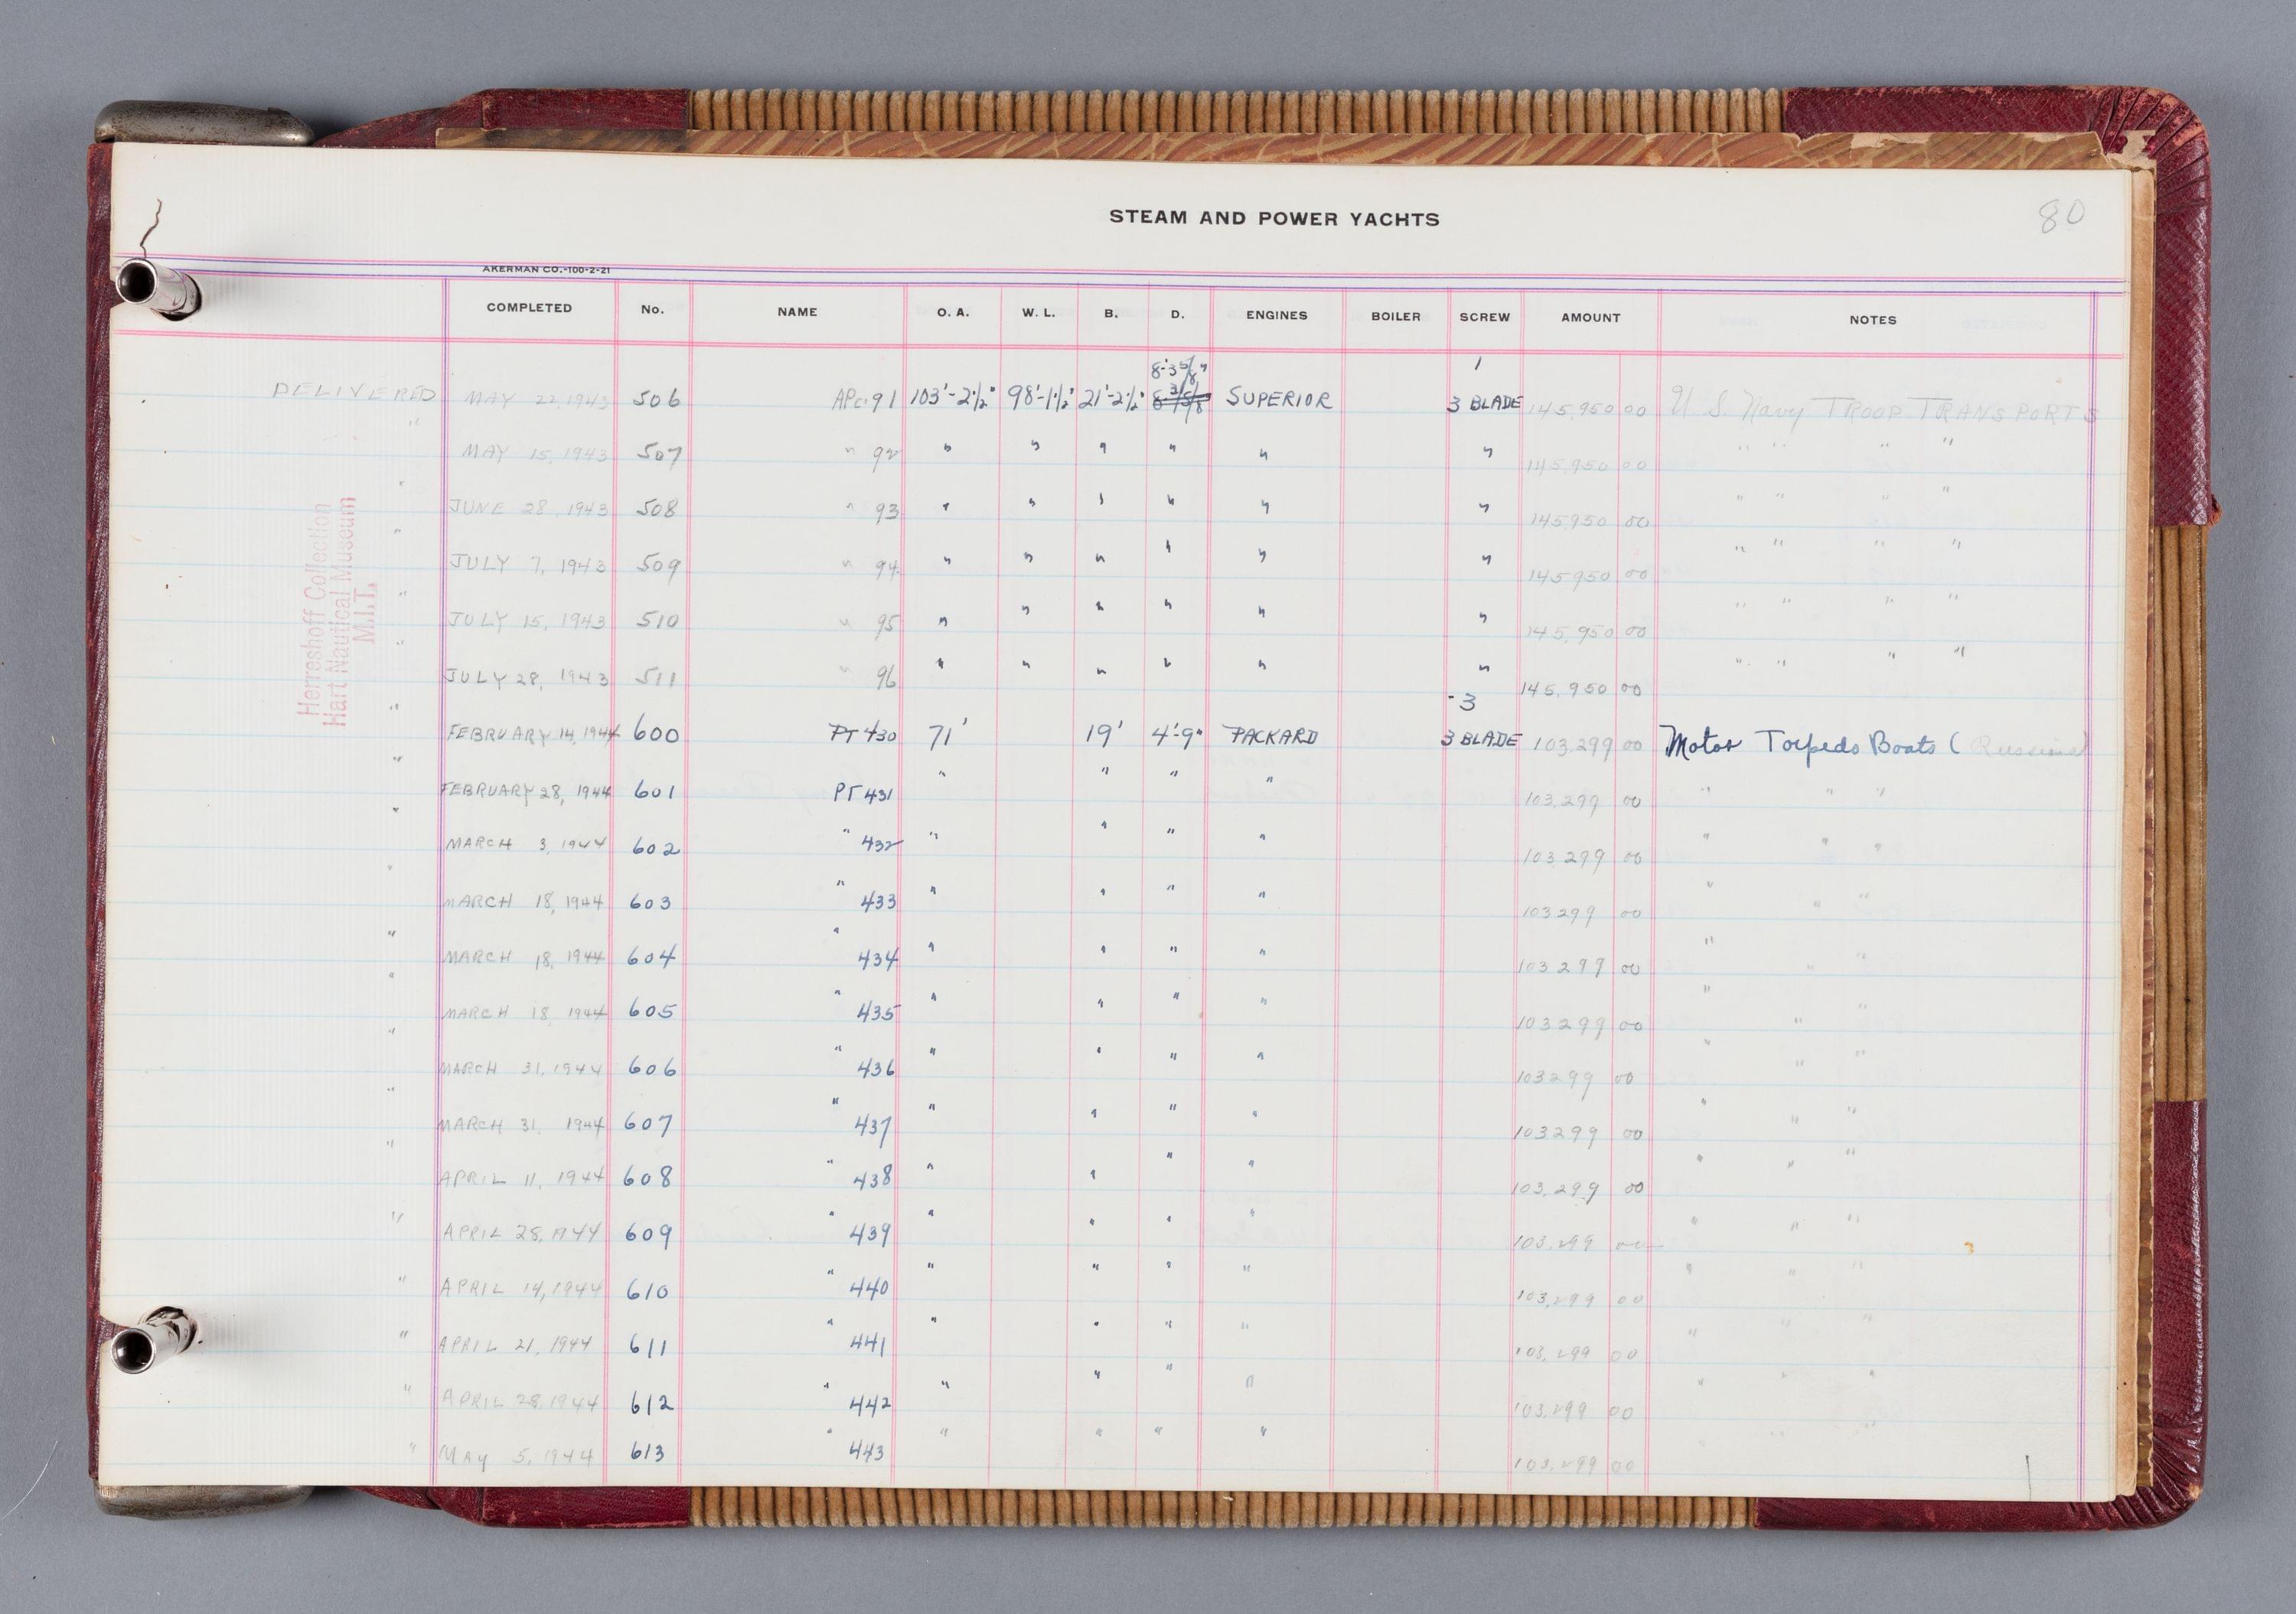 STEAM AND POWER YACHTS
80
AKERMAN CO.-100-2-21
COMPLETED No. NAME O. A. W. L. B. D. ENGINES BOILER SCREW AMOUNT NOTES
DELIVERED MAY 22, 1943 506 APc-91 103'-2½" 98'-1½" 21'-2½" 8'-3⅝" SUPERIOR 1 3 BLADE 145,950 00 U. S. Navy TROOP TRANSPORTS
" MAY 15, 1943 507 " 92 " " " " " " 145,950 00 " " " "
" JUNE 28, 1943 508 " 93 " " " " " " 145,950 00 " " " "
" JULY 7, 1943 509 " 94 " " " " " " 145950 00 " " " "
" JULY 15, 1943 510 " 95 " " " " " " 145,950 00 " " " "
" JULY 28, 1943 511 " 96 " " " " " " 145,950 00 " " " "
" FEBRUARY 14, 1944 600 PT 430 71' 19' 4'-9" PACKARD -3 3 BLADE 103,299 00 Motor Torpedo Boats (
" FEBRUARY 28, 1944 601 PT 431 " " " " 103,299 00 " " "
" MARCH 3, 1944 602 " 432 " " " " 103,299 00 " " "
" MARCH 18, 1944 603 " 433 " " " " 103299 00 " " "
" MARCH 18, 1944 604 " 434 " " " " 103299 00 " " "
" MARCH 18, 1944 605 " 435 " " " " 103299 00 " " "
" MARCH 31, 1944 606 " 436 " " " " 103299 00 " " "
" MARCH 31, 1944 607 " 437 " " " " 103299 00 " " "
" APRIL 11, 1944 608 " 438 " " " " 103,299 00 " " "
" APRIL 28, 1944 609 " 439 " " " " 103,299 00 " " "
" APRIL 14, 1944 610 " 440 " " " " 103,299 00 " " "
" APRIL 21, 1944 611 " 441 " " " " 103,299 00 " " "
" APRIL 28, 1944 612 " 442 " " " " 103,299 00 " " "
" MAY 5, 1944 613 " 443 " " " " 103,299 00 " " "
Herreshoff Collection
Hart Nautical Museum
M.I.T.